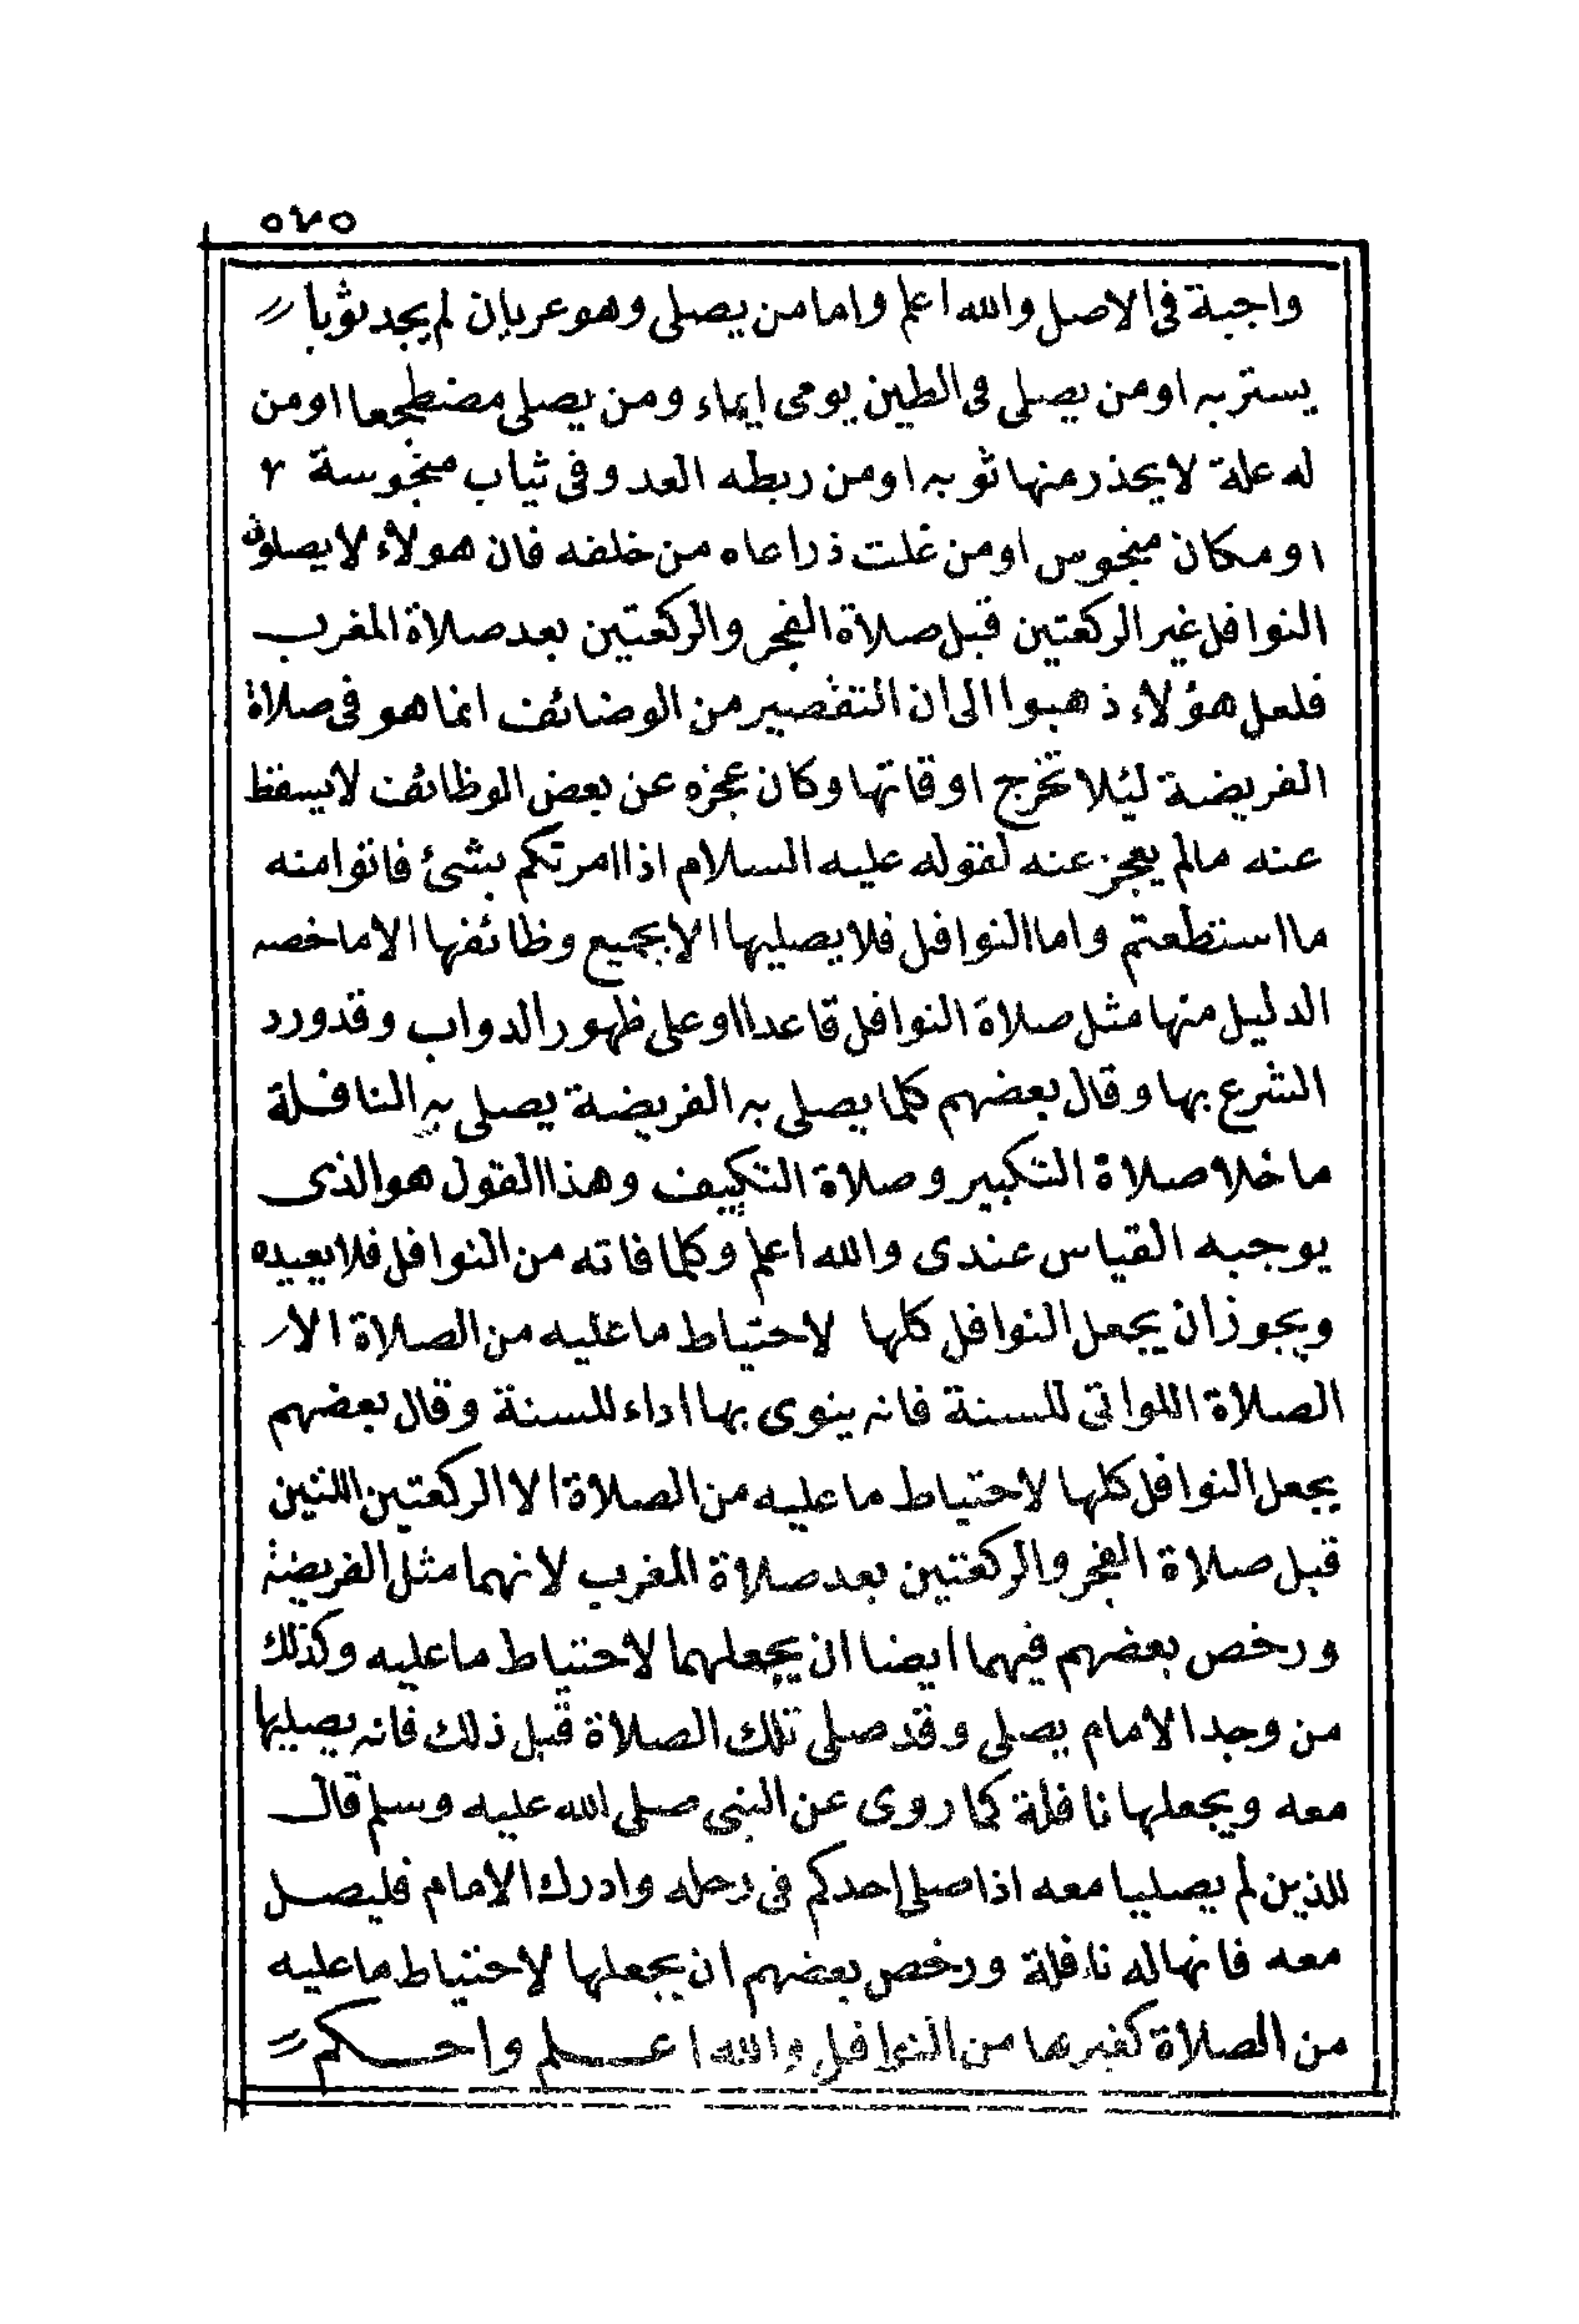 ٥٢٥
واجبة فى الاصل والله اعلم واما من يصلى وهو عريان لم يجد ثوبا
يستتر به او من يصلى فى الطين يومى ايماء ومن يصلى مضطجعا او من
له علة لا يحذر منها ثوبه او من ربطه العدو فى ثياب منجوسة
او مكان منجوس او من غلت ذراعاه من خلفه فان هولاء لا يصلون
النوافل غير الركعتين قبل صلاة الفجر والركعتين بعد صلاة المغرب
فلعل هؤلاء ذهبوا الى ان التقصير من الوضائف انما هو فى صلاة
الفريضة ليئلا تخرج اوقاتها وكان عجزه عن بعض الوظائف لا يسقط
عنه مالم يعجز عنه لقوله عليه السلام اذا امرتكم بشئ فاتوا منه
ما استطعتم واما النوافل فلا يصليها الا بجميع وظائفها الا ما خصه
الدليل منها مثل صلاة النوافل قاعدا او على ظهور الدواب وقد ورد
الشرع بها وقال بعضهم كلما يصلى به الفريضة يصلى به النافلة
ما خلا صلاة التكبير وصلاة التكييف وهذا القول هو الذى
يوجبه القياس عندى والله اعلم وكلما فاته من النوافل فلا يعيده
ويجوز ان يجعل النوافل كلها لاحتياط ما عليه من الصلاة الا
الصلاة اللواتى للسنة فانه ينوى بها اداء للسنة وقال بعضهم
يجعل النوافل كلها لاحتياط ما عليه من الصلاة الا الركعتين اللتين
قبل صلاة الفجر والركعتين بعد صلاة المغرب لانهما مثل الفريضة
ورخص بعضهم فيهما ايضا ان يجعلهما لاحتياط ما عليه وكذلك
من وجد الامام يصلى وقد صلى تلك الصلاة قبل ذلك فانه يصليها
معه ويجعلها نافلة كما روى عن النبى صلى الله عليه وسلم قال
للذين لم يصليا معه اذا صلى احدكم فى رحله وادرك الامام فليصل
معه فانها له نافلة ورخص بعضهم ان يجعلها لاحتياط ما عليه
من الصلاة كغيرها من النوافل والله اعلم واحكم